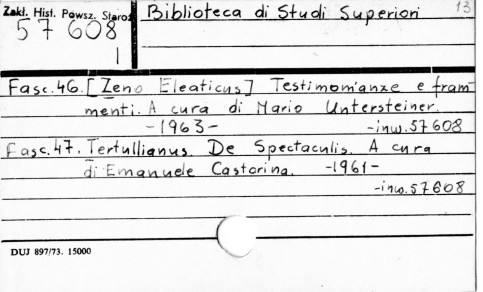 Zakł. Hist. Powsz. Staroż.
57608
1
Biblioteca di Studi Superiori
13
Fasc. 46. [Zeno Eleaticus] Testimonianze e fram-
menti. A cura di Mario Untersteiner.
-1963-
-inw. 57608
Fasc. 47. Tertullianus. De Spectaculis. A cura
di Emanuele Castorina. -1961-
-inw. 57608
DUJ 897/73. 15000